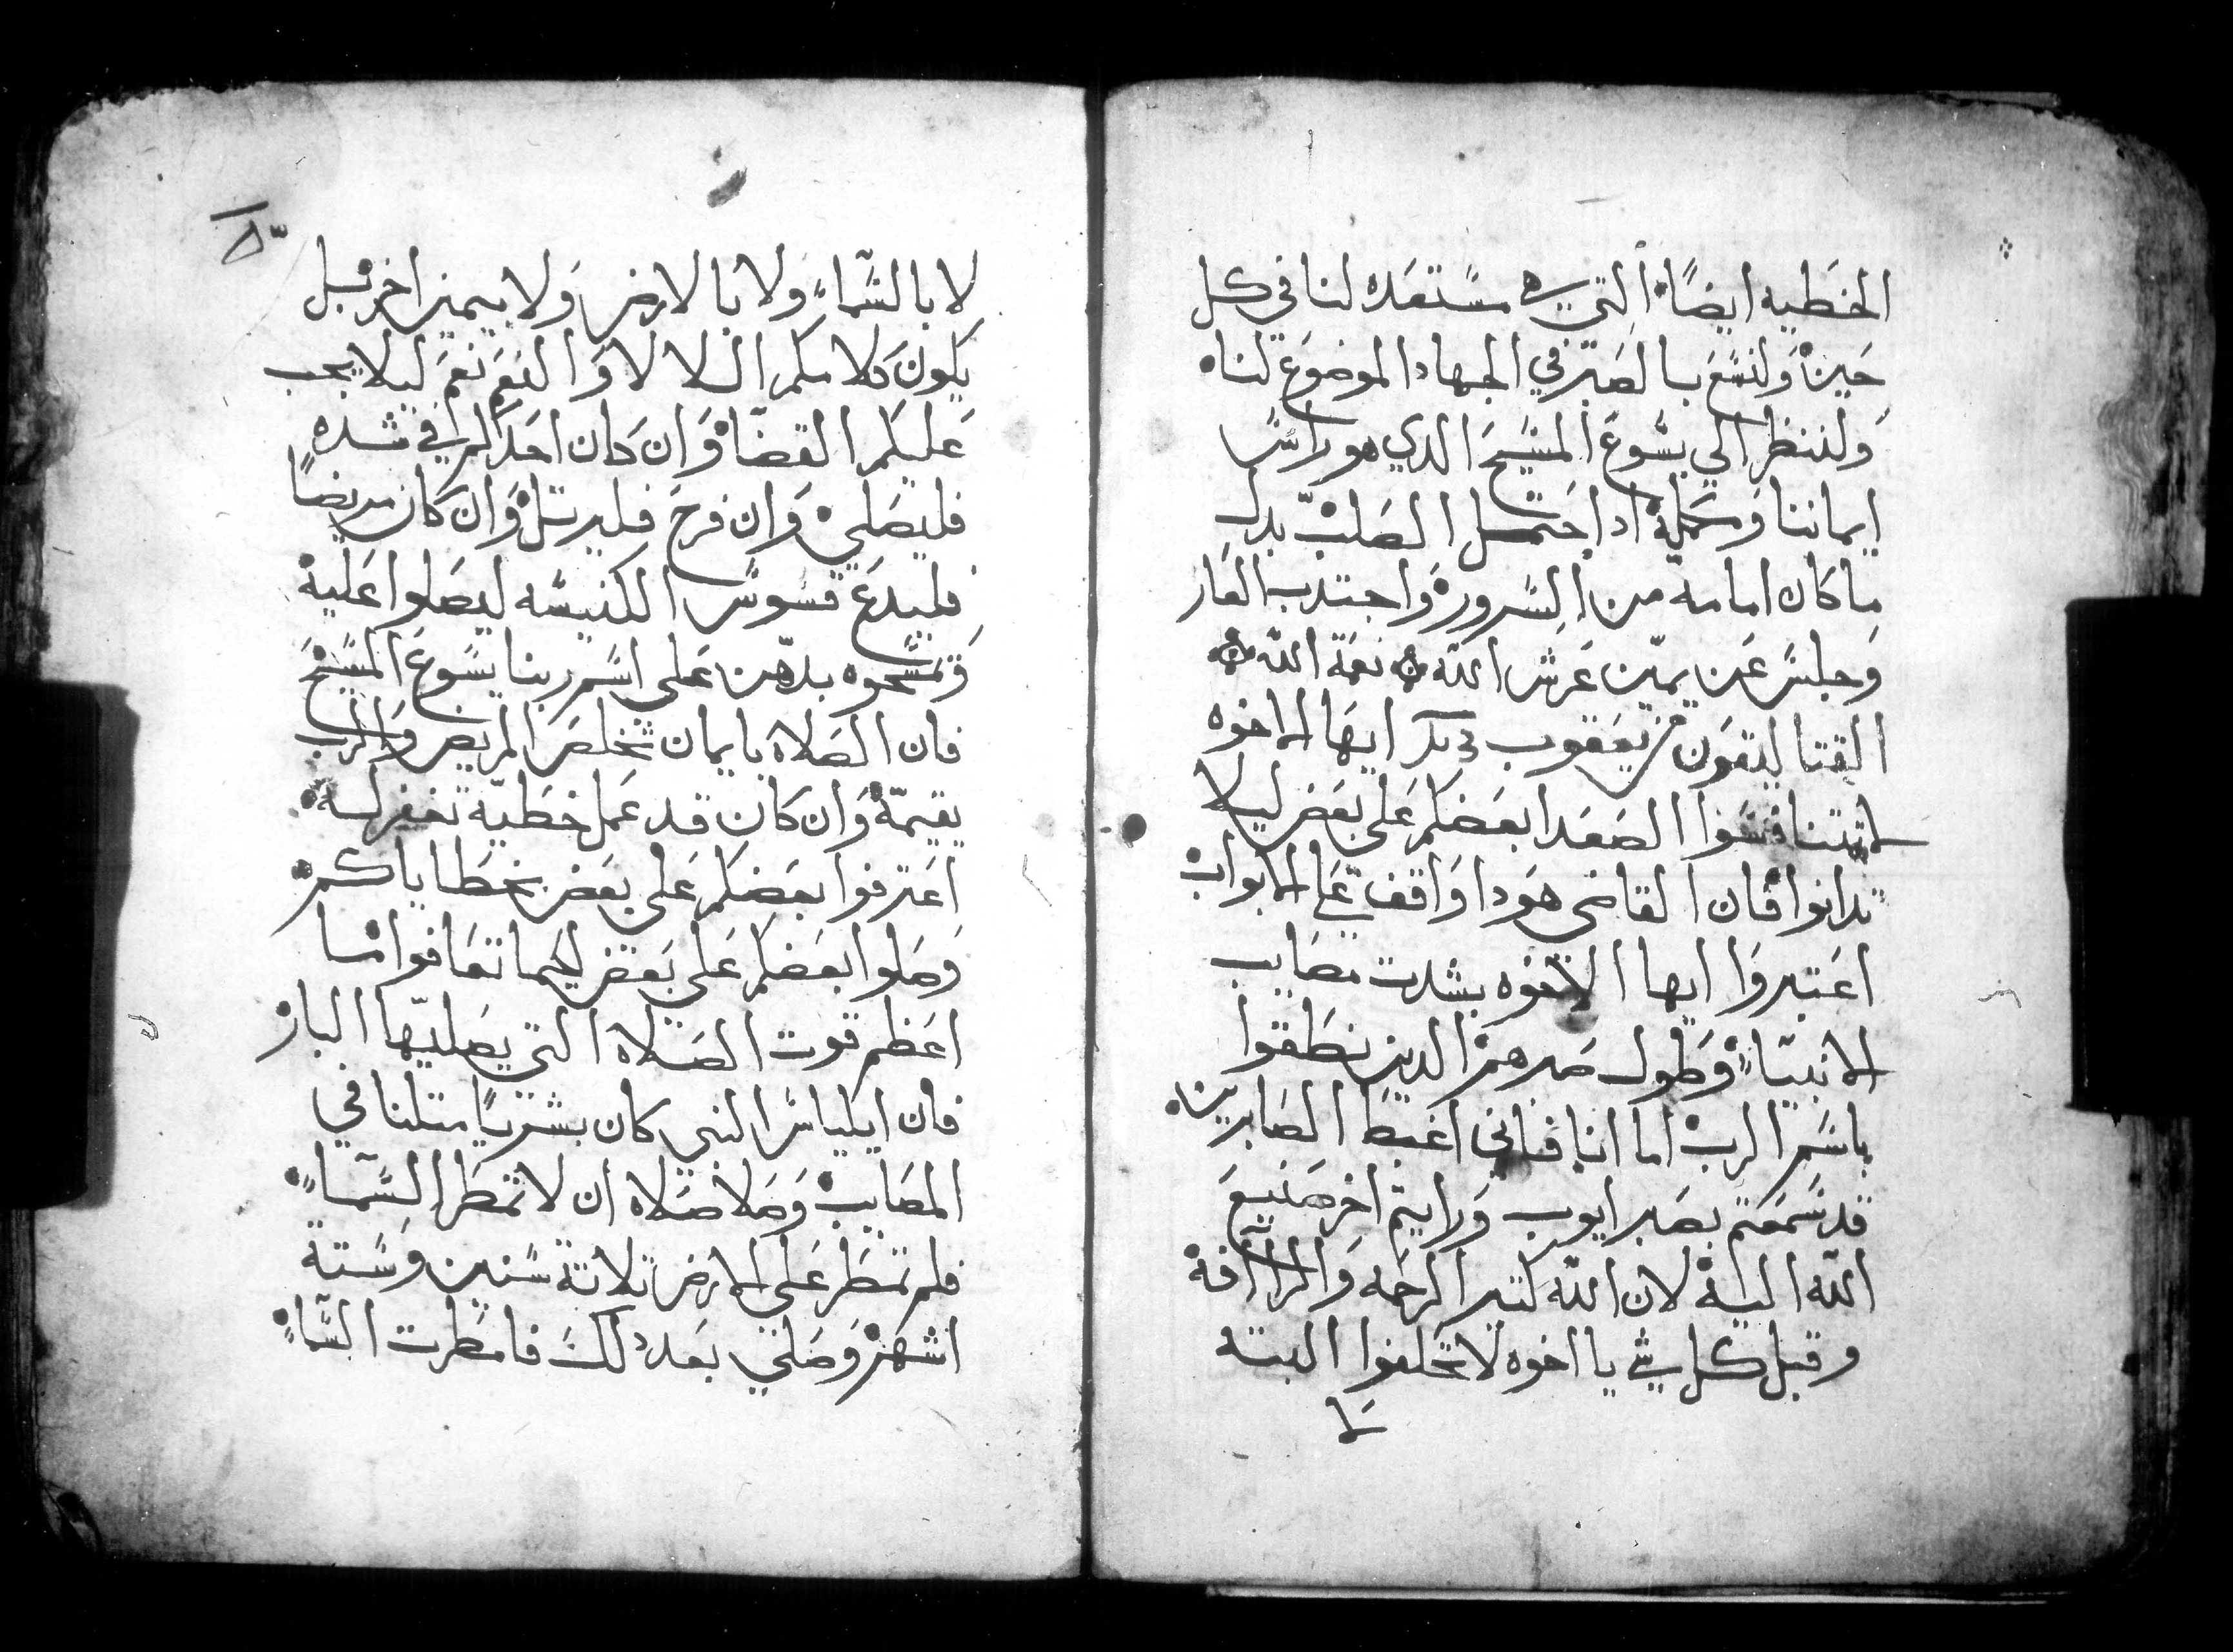 الخطيه ايضًا التي هي مستعده لنا في كل
حين ولنسع بالصبر في الجهاد الموضوع لنا
ولننظر الي يسوع المسيح الدي هو راس
ايماننا وكمله اد احتمل الصلب بدل
ما كان امامه من السرور واجتدب العار
وجلس عن يمين عرش الله نعمة الله
القتاليقون من يعقوب ايها الاخوه
لا تتنافسوا الصعدا بعضكم على بعض ليلا
تدانوا فان القاضي هودا واقف على الابواب
اعتبروا ايها الاخوه بشدت مصايب
الانبياء وطول صبرهم الدين نطقوا
باسم الرب اما انا فاني اغبط الصابرين
قد سمعتم بصبر ايوب ورايتم اخر صنيع
الله اليه لان الله كتير الرحمه والرأفه
وقبل كل شي يا اخوه لا تحلفوا البته
لا
لا بالسماء ولا بالارض ولا بيمين اخر بل
يكون كلامكم اللا لا والنعم نعم ليلا يجب
عليكم القضا وان كان احدكم في شده
فليصلي وان فرح فليرتل وان كان مريضًا
فليدع قسوس الكنيسه ليصلوا عليه
وتمسحوه بدهن على اسم ربنا يسوع المسيح
فان الصلاه بايمان تخلص المريض والرب
يقيمه وان كان قد عمل خطيه تغفر له
اعترفوا بعضكم على بعض بخطاياكم
وصلوا بعضكم على بعض لكيما تعافوا ما
اعظم قوت الصلاه التي يصليها البار
فان ايلياس النبي كان بشريًا متلنا في
المصايب وصلا صلاه ان لا تمطر السماء
فلم تمطر على الارض تلاتة سنين وستة
اشهر وصلي بعد دلك فامطرت السماء